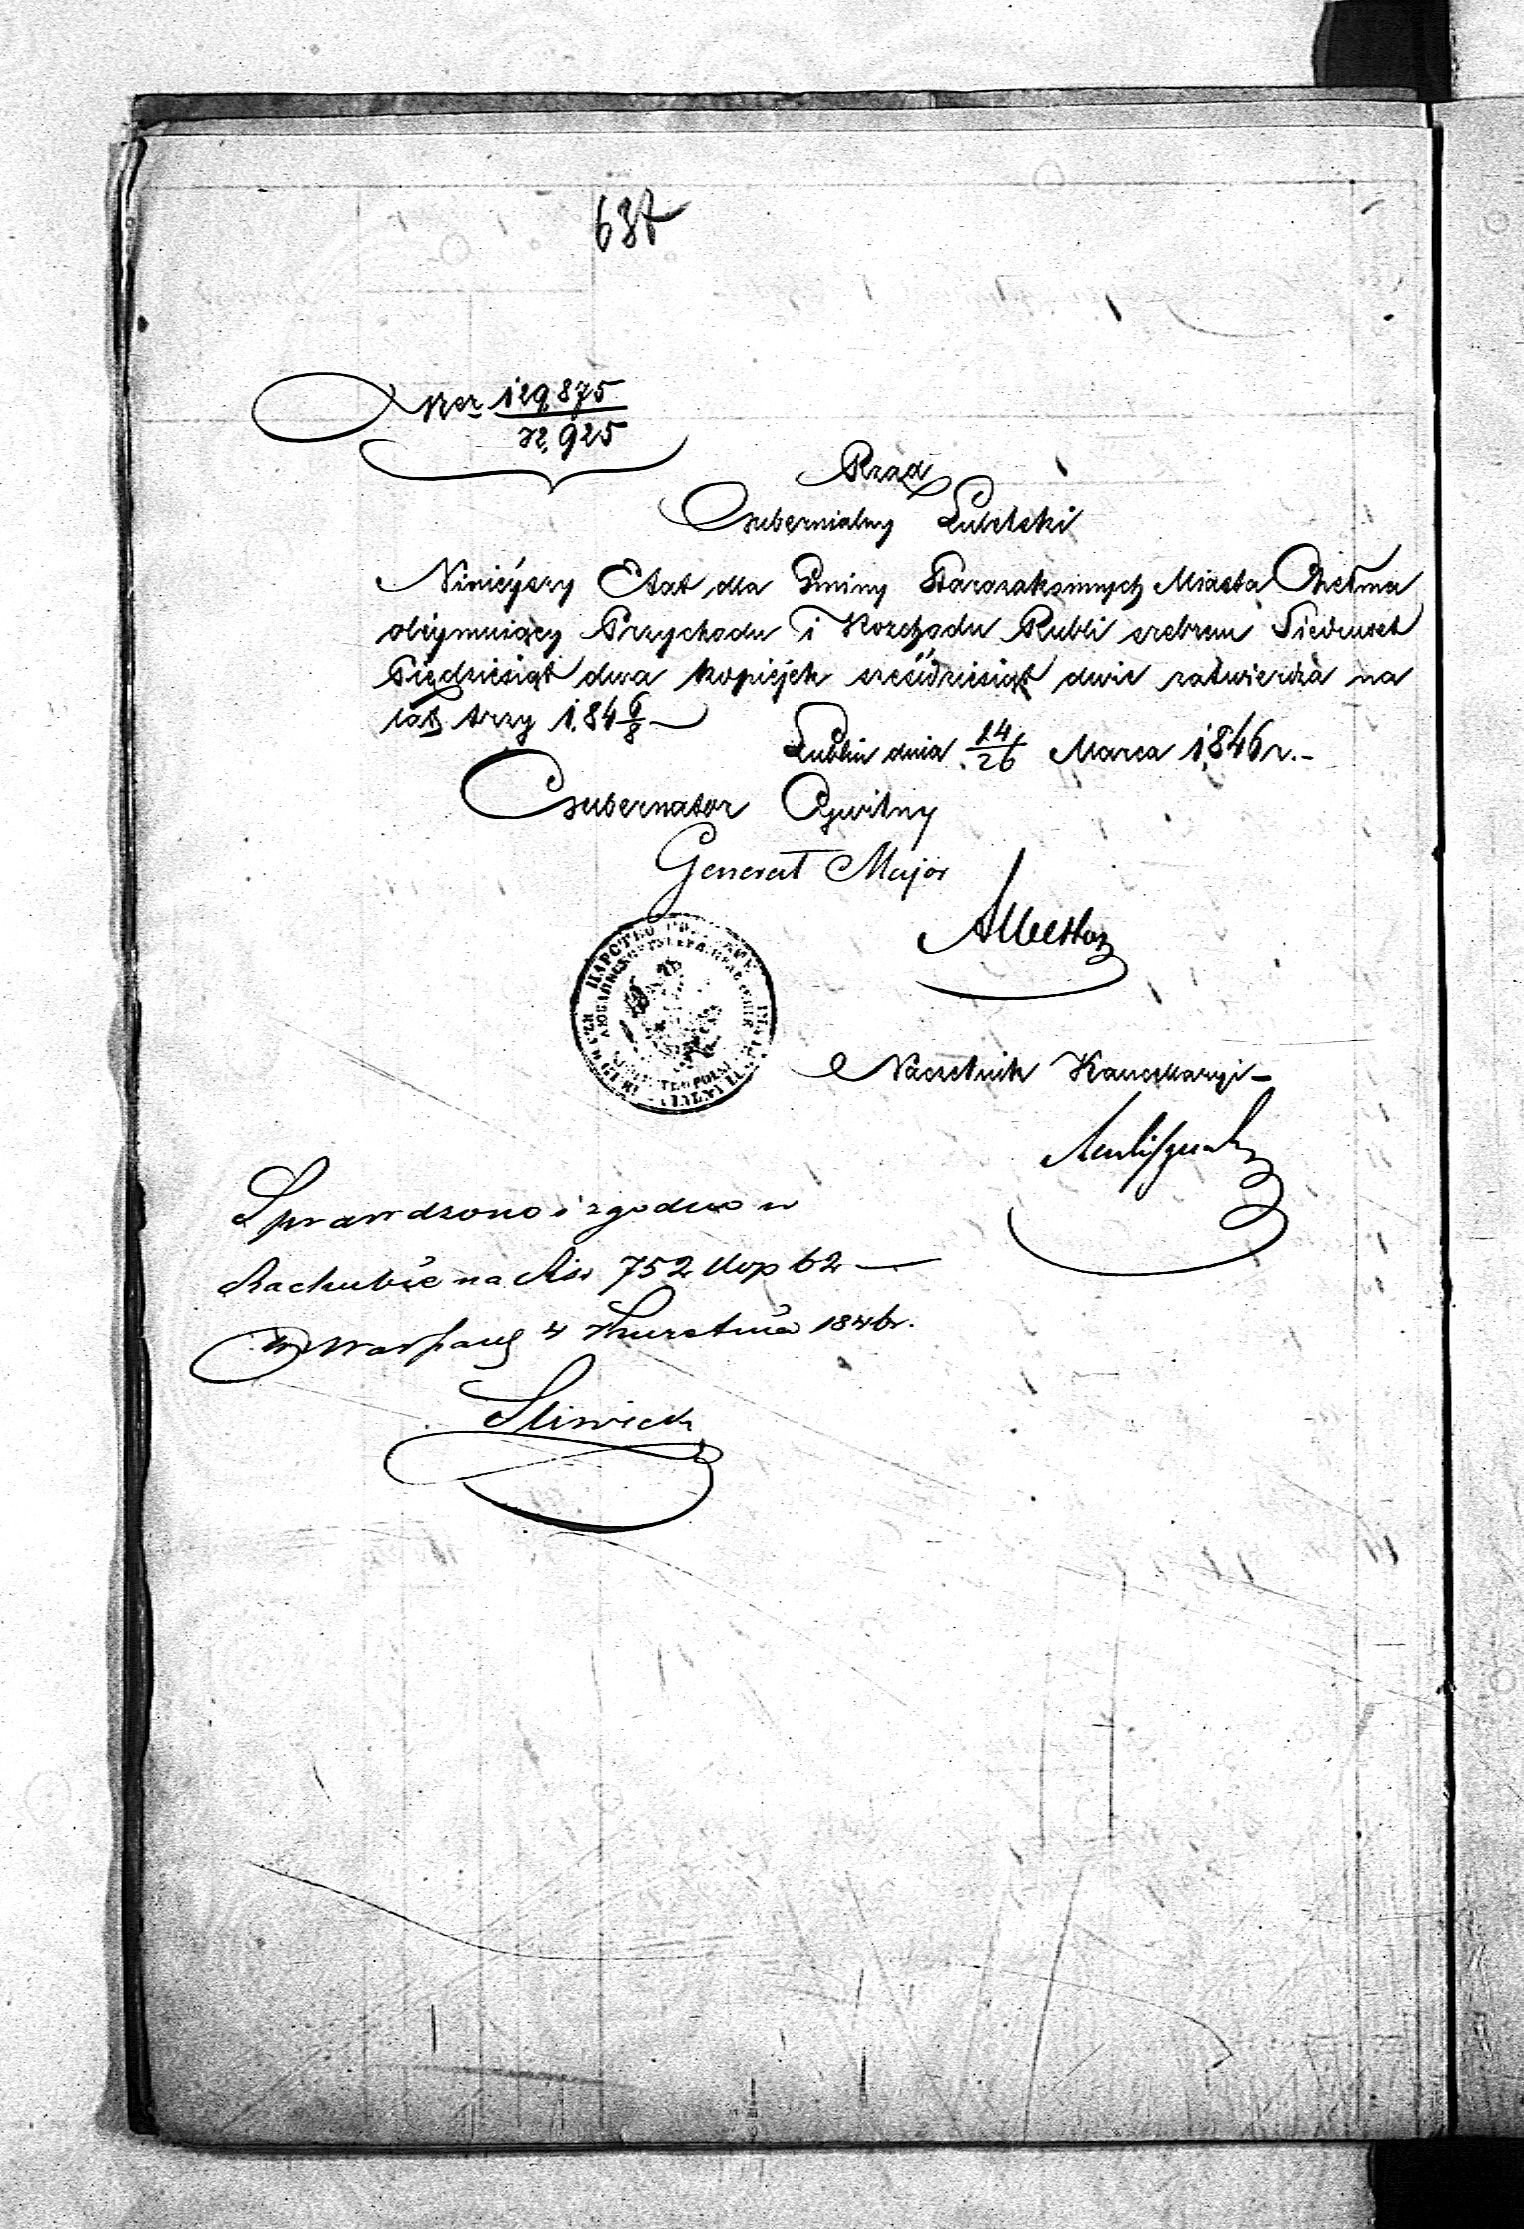 637
Ner 129,875
32,925
Rząd
Gubernialny Lubelski
Niniéyszy Etat dla Gminy Starozakonnych Miasta Chełma
obéymuiący Przychodu i Rozchodu Rubli srebrem Siedmset
Pięćdziesiąt dwa kopiéjek sześćdziesiąt dwie zatwierdza na
lat trzy 184 6/8
Lublin dnia 14/26 Marca 1846 r.-
Gubernator Cywilny
Generał Major
Naczelnik Kancellaryi
ЦАРСТВО
Sprawdzono i zgodno w
Rachubie na Rsr 752 kop 62
W Warszawie 4 Kwietnia 1846 r.